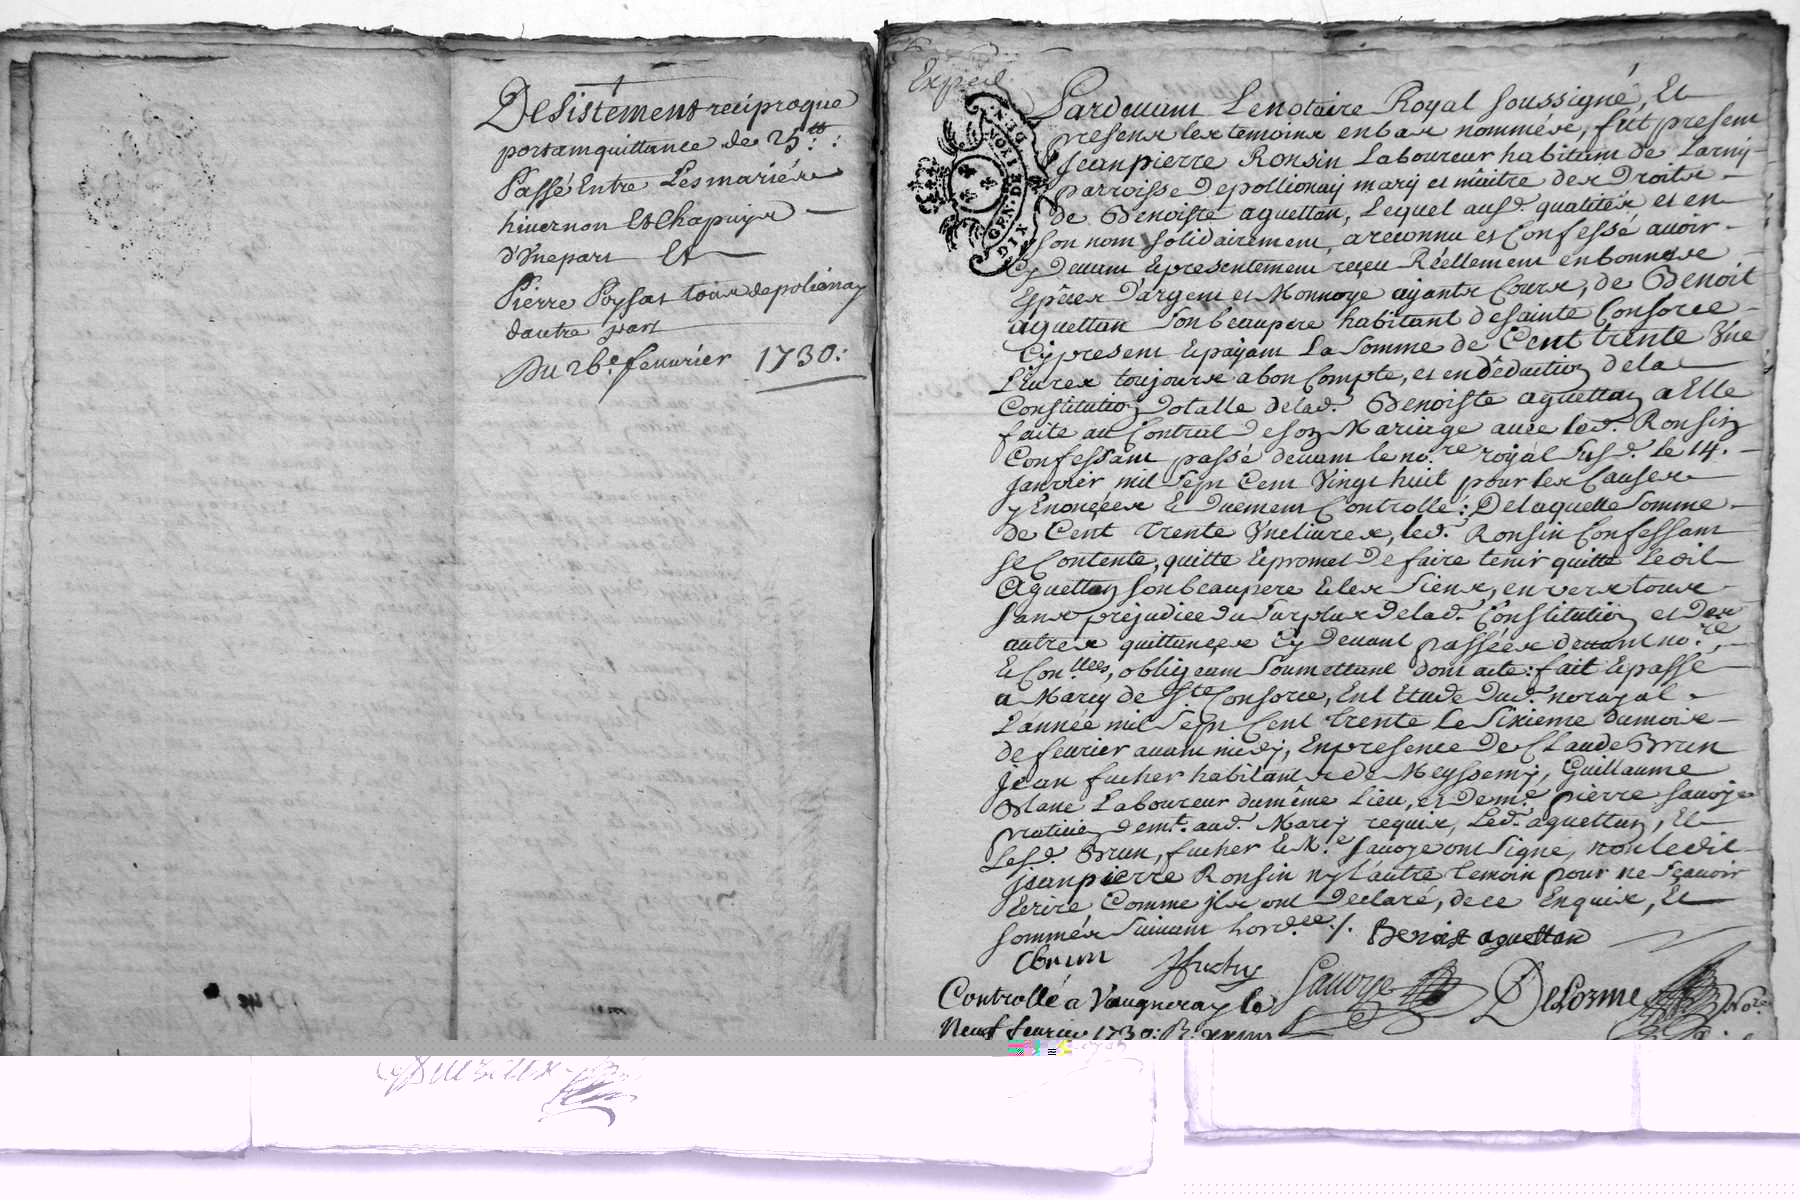 Desistement reciproque
portant quittance de 25.tt:
Passé Entre Les mariés
hivernon Et Chapuys
d'Vne part Et
Pierre Poysat tous de polionay
dautre part
Du 26.e fevurier 1730:
Exped.
GEN. DE LYON
DIX DEN.
Pardevant Le notaire Royal soussigné, Et
presens les temoins en bas nommés, fut present
Jean pierre Ronsin Laboureur habitant de Larny
parroisse de pollionay mary et maitre des Droits
de Benoiste aguettan, Lequel ausd. qualités et en
son nom solidairement, a reconnu et Confessé avoir
Cy devant Et presentement reçeu Réellement en bonnes
Espèces D'argent et Monnoye ayants Cours, de Benoit
aguettan son beaupere habitant de sainte Consorce
Cy present Et payant La somme de Cent trente Vne
Livres toujours a bon Compte, et en déduction de la
Constitution Dotalle de lad. Benoiste aguettan a Elle
faite au Contrat de son Mariage avec led. Ronsin
Confessant passé devant le no.re royal susd. le 14.
Janvier mil sept Cent Vingt huit pour les Causes
y Enoncées Et Duement Controllé: De laquelle somme
de Cent trente Vne livres, led. Ronsin Confessant
se Contente, quitte Et promet De faire tenir quitte Ledit
Aguettan son beaupere Et les siens, envers tous
sans préjudice du surplus de lad. Constitution et Des
autres quittances Cy Devant passées devant no.re,
Et Con.llées, obligeant soumettant dont acte: fait Et passé
a Marcy de S.te Consorce, En L'Etude dud. no royal
L'année mil sept Cent trente Le sixieme du mois
de fevrier avant midy, En presence De Claude Brun
Jean fucher habitants de Meyssemy, Guillaume
Laboureur du même Lieu, et De me. pierre savoye
praticien demt. aud. Marcy requis, Led. aguettan, Et
Lesd. Brun, fucher Et M.e savoye ont signe, non ledit
jean pierre Ronsin ny l'autre temoin pour ne sçavoir
Ecrire Comme jls ont Declaré, de ce Enquis, Et
sommés suivant l'ord.ce /. Benoist aguettan
Cbrun Jfuchy Savoye DeLorme No.re
Controllé a Vaugneray le
Neuf fevrier 1730: R.